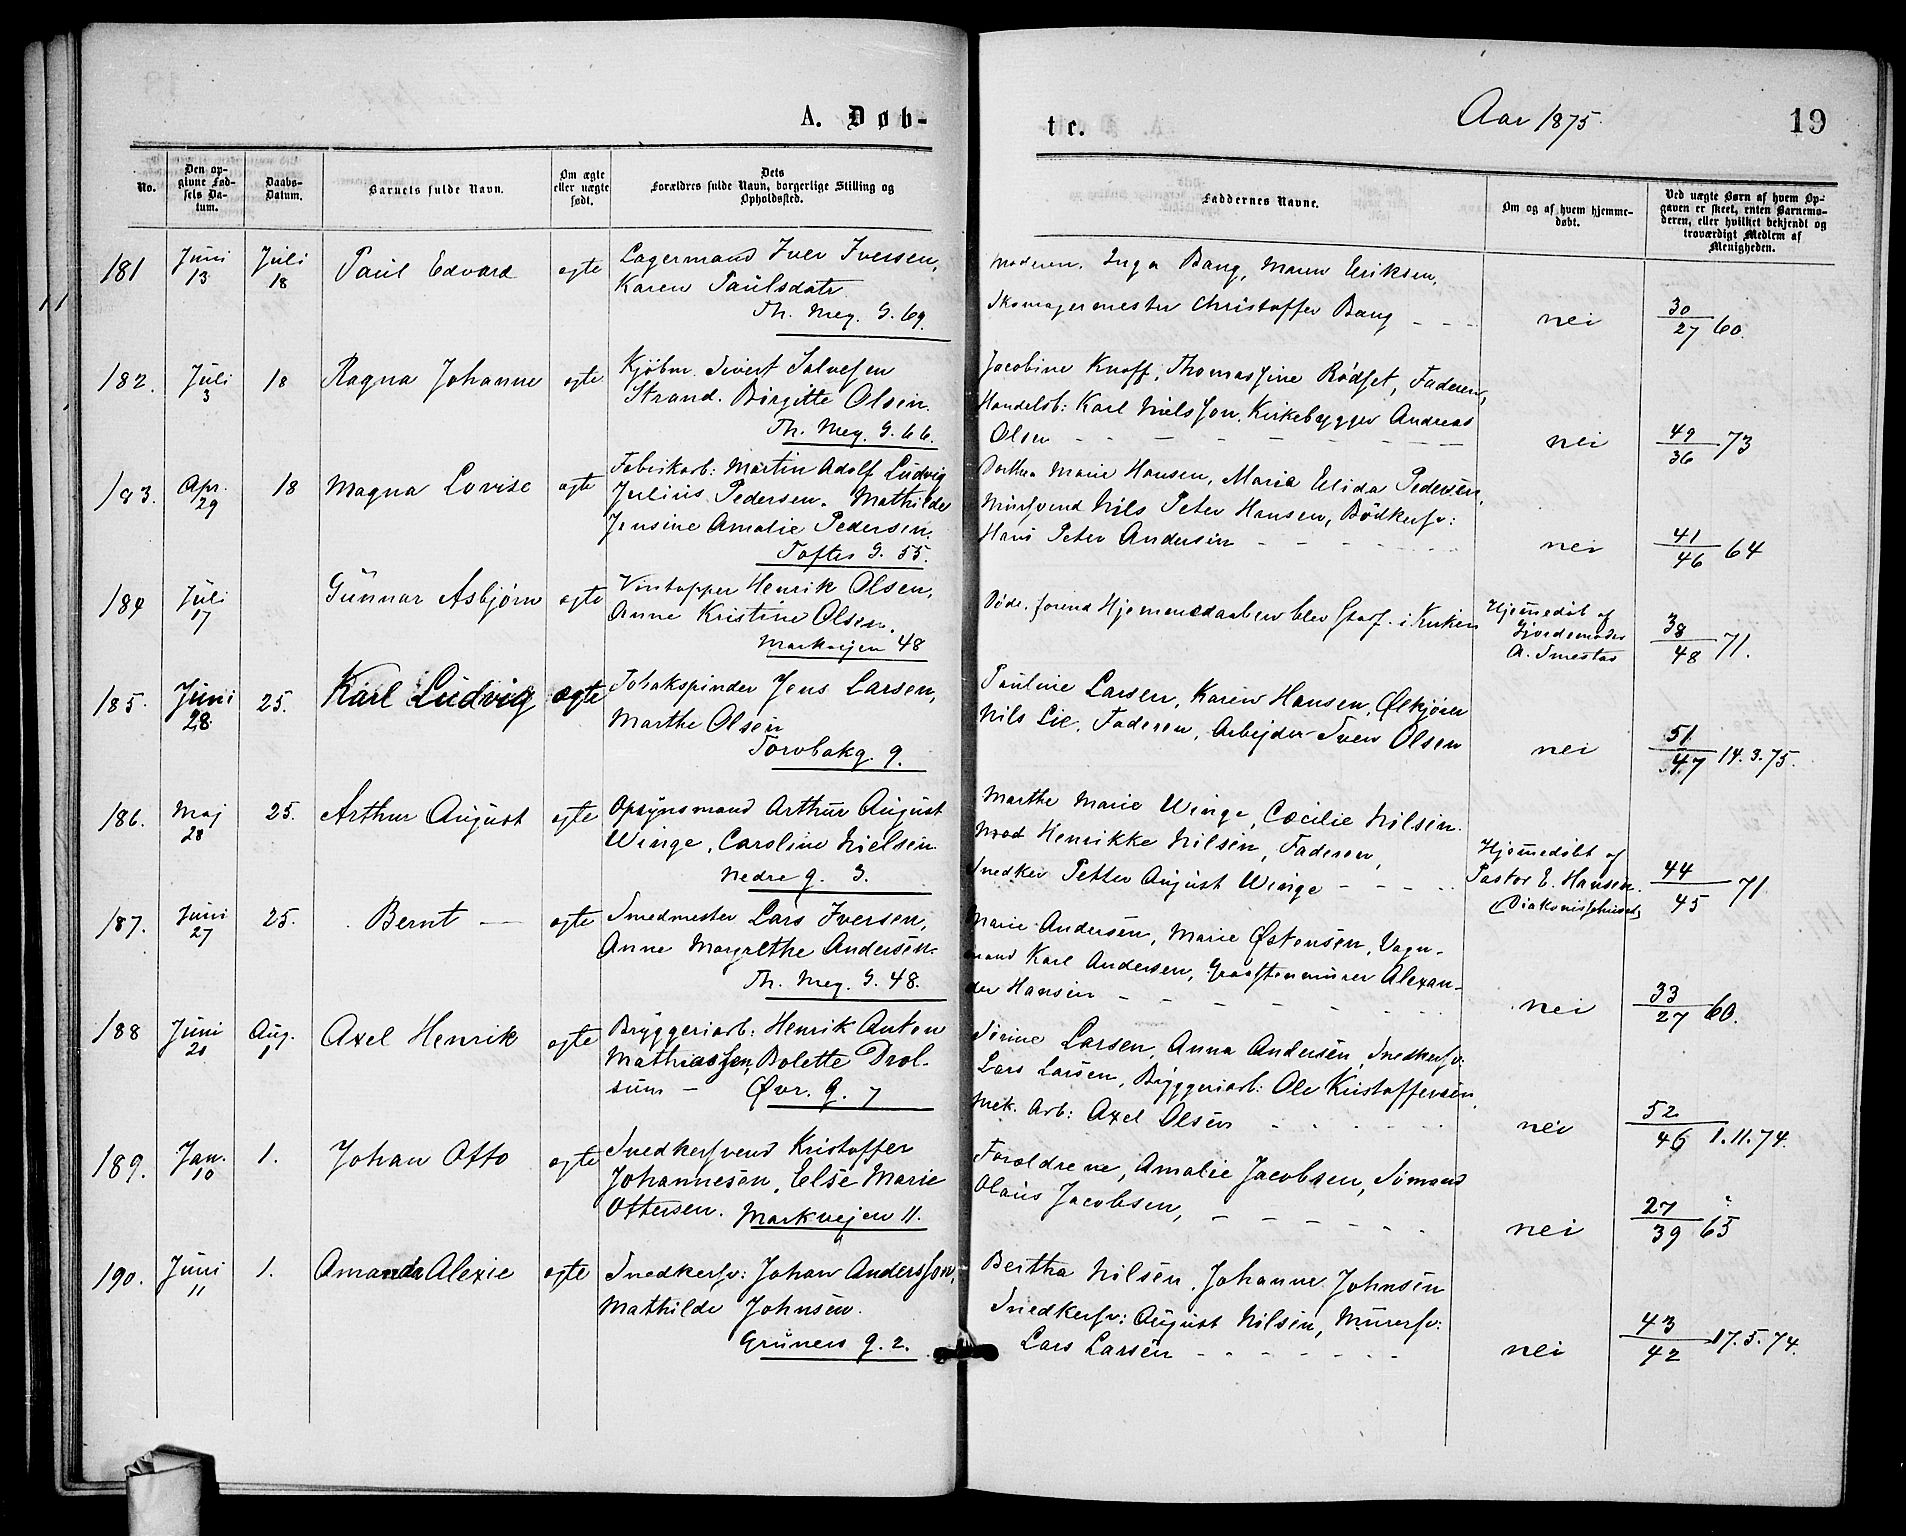 A. Døb-
te.
Aar 1875.
19
No.
Den op-
givne Fød-
sels Da-
tum.
Daabs-
Datum.
Barnets fulde Navn.
Om ægte
eller uægte
født.
Dets
Forældres fulde Navn, borgerlige Stilling og
Opholdssted.
Faddernes Navne.
Om og af hvem hjemme-
døbt.
Ved uægte Børn af hvem Op-
gaven er skeet, enten Barnemo-
deren, eller hvilket bekjendt og
troværdigt Medlem af
Menigheden.
181
Juni
13
Juli
18
Paul Edvard
egte
Lagermand Iver Iversen,
Karen Paulsdatr
Th. Mey. G. 69.
Moderen. Inga Bang, Maren Eriksen,
Skomagermester Christoffer Bang
nei
30
27 60.
182.
Juli
3
18
Ragna Johanne
egte
Kjøbm. Sivert Salvesen
Strand. Birgitte Olsen.
Th. Mey. G. 66.
Jacobine Knoff, Thomassine Rødset, Faderen,
Handelsb: Karl Nielsson, Kirkebygger Andreas
Olsen
nei
49
36 73
183.
Apr.
29
18
Magna Lovise
egte
Fabrikarb: Martin Adolf Ludvig
Julius Pedersen. Mathilde
Jensine Amalie Pedersen.
Toftes G. 55.
Dorthea Marie Hansen, Marie Elida Pedersen,
Mursvend Nils Peter Hansen, Bødkersv:
Hans Peter Andersen
nei
41
46 64
184
Juli
17
Gunnar Asbjørn
egte
Vintapper Henrik Olsen,
Anne Kristine Olsen.
Markvejen 48
Døde, forend Hjemmedaaben blev Stadf. i Kirken
Hjemmedøbt af
Gjordemoder
A. Smestad
38
48 71.
185.
Juni
28
25.
Karl Ludvig
egte
Tobakspinder Jens Larsen,
Marthe Olsen
Torvbakg. 9.
Pauline Larsen, Karen Hansen, Ølkjører
Nils Lie, Faderen, Arbejder Sven Olsen
nei
51
47 14.3.75.
186.
Maj
28
25.
Arthur August
egte
Opsynsmand Arthur August
Winge, Caroline Nielsen
Nedre g. 3.
Marthe Marie Winge, Cæcilie Nilsen.
Mad Henrikke Nilsen, Faderen,
Snedker Petter August Winge
Hjemmedøbt af
Pastor E. Hansen.
(Diakonissehuset)
44
45 71.
187.
Juni
27
25.
Bernt
egte
Smedmester Lars Iversen,
Anne Margrethe Andersen.
Th. Mey. G. 48.
Marie Andersen, Marie Østensen, Vogn-
mand Karl Andersen, Graastenmurer Alexan-
der Hansen
nei
33
27 60.
188
Juni
20
Aug.
1
Axel Henrik
egte
Bryggeriarb: Henrik Anton
Mathiassen, Bolette Drol-
sum
Øvr. g. 7
Sirine Larsen, Anna Andersen, Snedkersv:
Lars Larsen, Bryggeriarb: Ole Kristoffersen,
Mek. Arb: Axel Olsen
nei
52
46 1.11.74.
189.
Jan.
10
1.
Johan Otto
egte
Snedkersvend Kristoffer
Johannesen, Else Marie
Ottersen. Markvejen 11.
Forældrene, Amalie Jacobsen, Sømand
Olaus Jacobsen,
nei
27
39 65
190.
Juni
11
1.
Amanda Alexie
egte
Snedkersv: Johan Andersson,
Mathilde Johnsen.
Grüners g. 2.
Bertha Nilsen, Johanne Johnsen
Snedkersv: August Nilsen, Murersv:
Lars Larsen
nei
43
42 17.5.74.